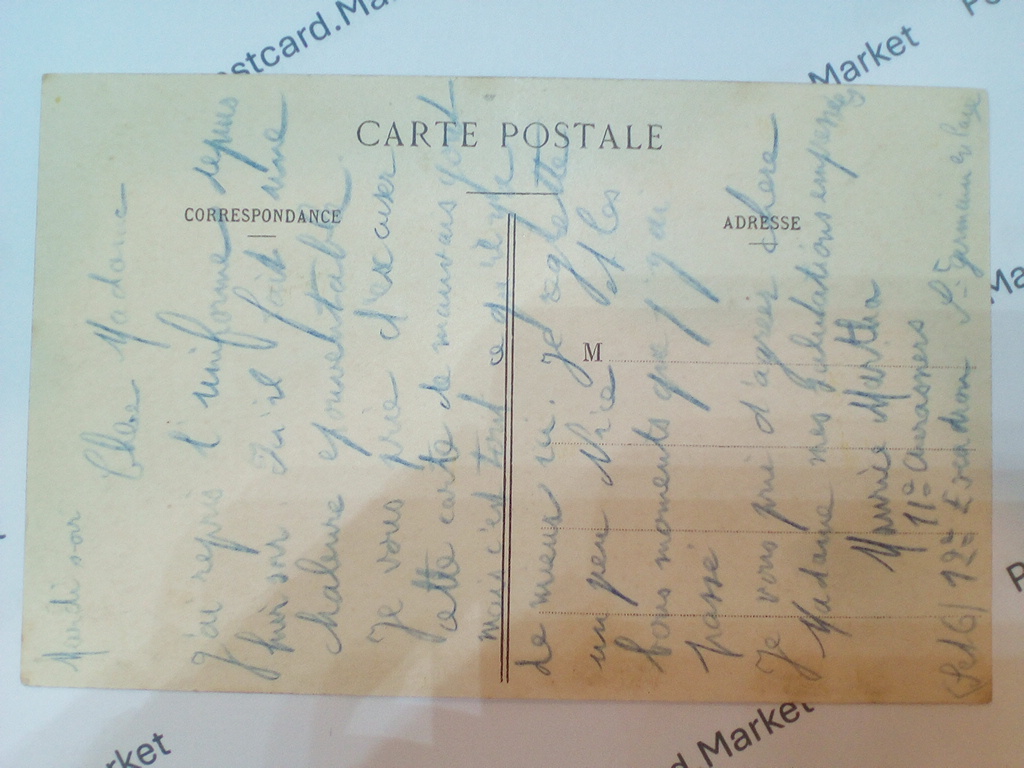 CARTE POSTALE
CORRESPONDANCE
ADRESSE
M
Mardi soir
Chère Madame
J'ai repris l'uniforme depuis
hier soir. Ici il fait une
chaleur épouventable
Je vous prie d'excuser
cette carte de mauvais goût
mais c'est tout ce qu'il y a
de mieux ici. Je regrette
un peu et les
bons moments que j'y ai
passé
Je vous prie d'agréer chère
Madame mes salutations empressées
Maurice Martha
11e Cuirassiers
12e Escadron St Germain en Laye
stcard.Ma
Market
Market
d.Market
rket
Ma